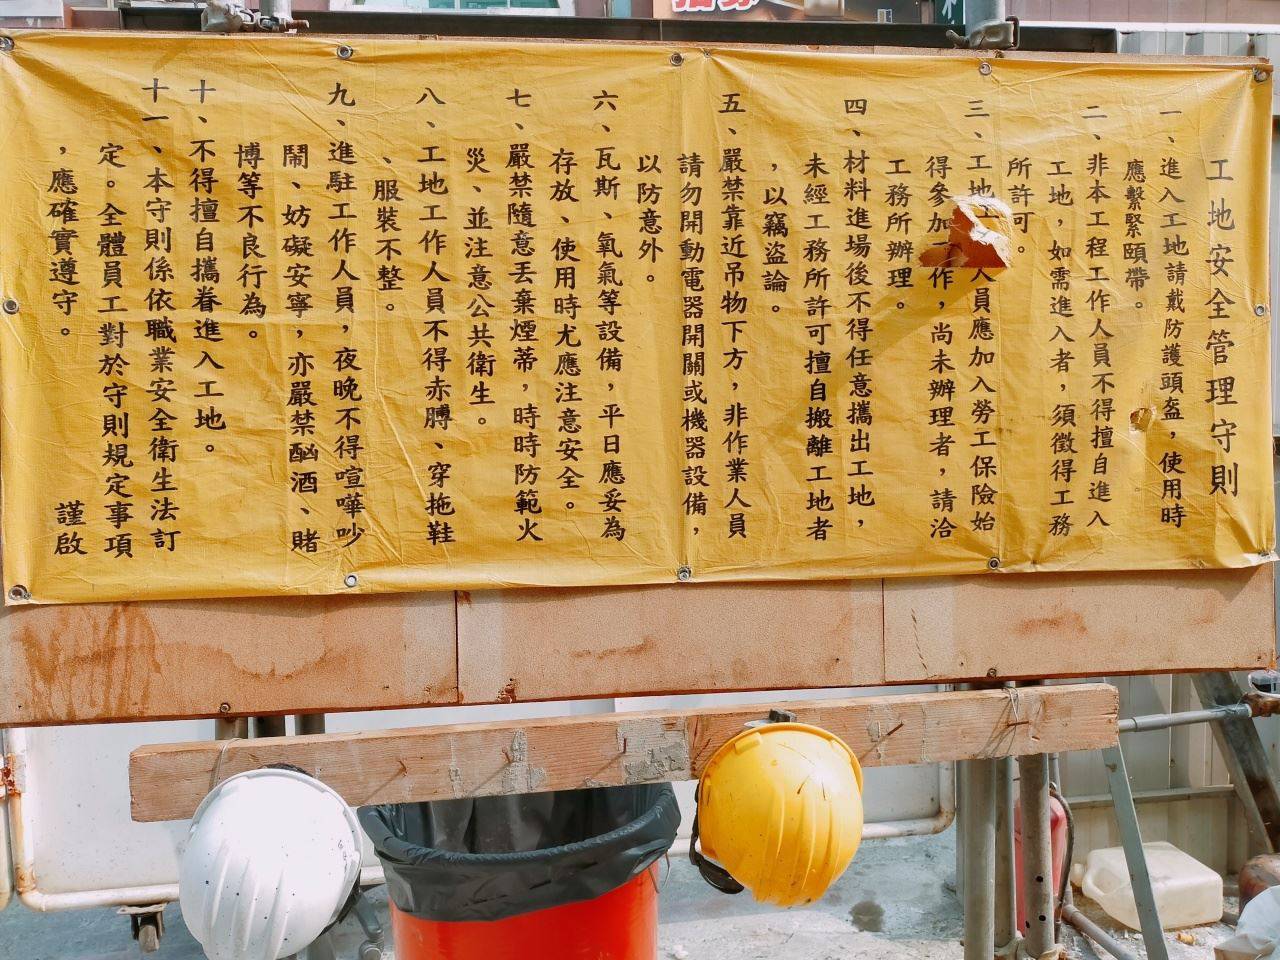 工地安全管理守則
一、進入工地請戴防護頭盔，使用時
應繫緊頤帶。
二、非本工程工作人員不得擅自進入
工地，如需進入者，須徵得工務
所許可。
三、工地工人員應加入勞工保險始
得參加工作，尚未辦理者，請洽
工務所辦理。
四、材料進場後不得任意攜出工地，
未經工務所許可擅自搬離工地者
，以竊盜論。
五、嚴禁靠近吊物下方，非作業人員
請勿開動電器開關或機器設備，
以防意外。
六、瓦斯、氧氣等設備，平日應妥為
存放、使用時尤應注意安全。
七、嚴禁隨意丟棄煙蒂，時時防範火
災、並注意公共衛生。
八、工地工作人員不得赤膊、穿拖鞋
、服裝不整。
九、進駐工作人員，夜晚不得喧嘩吵
鬧、妨礙安寧，亦嚴禁酗酒、賭
博等不良行為。
十、不得擅自攜眷進入工地。
十一、本守則係依職業安全衛生法訂
定。全體員工對於守則規定事項
，應確實遵守。
謹啟